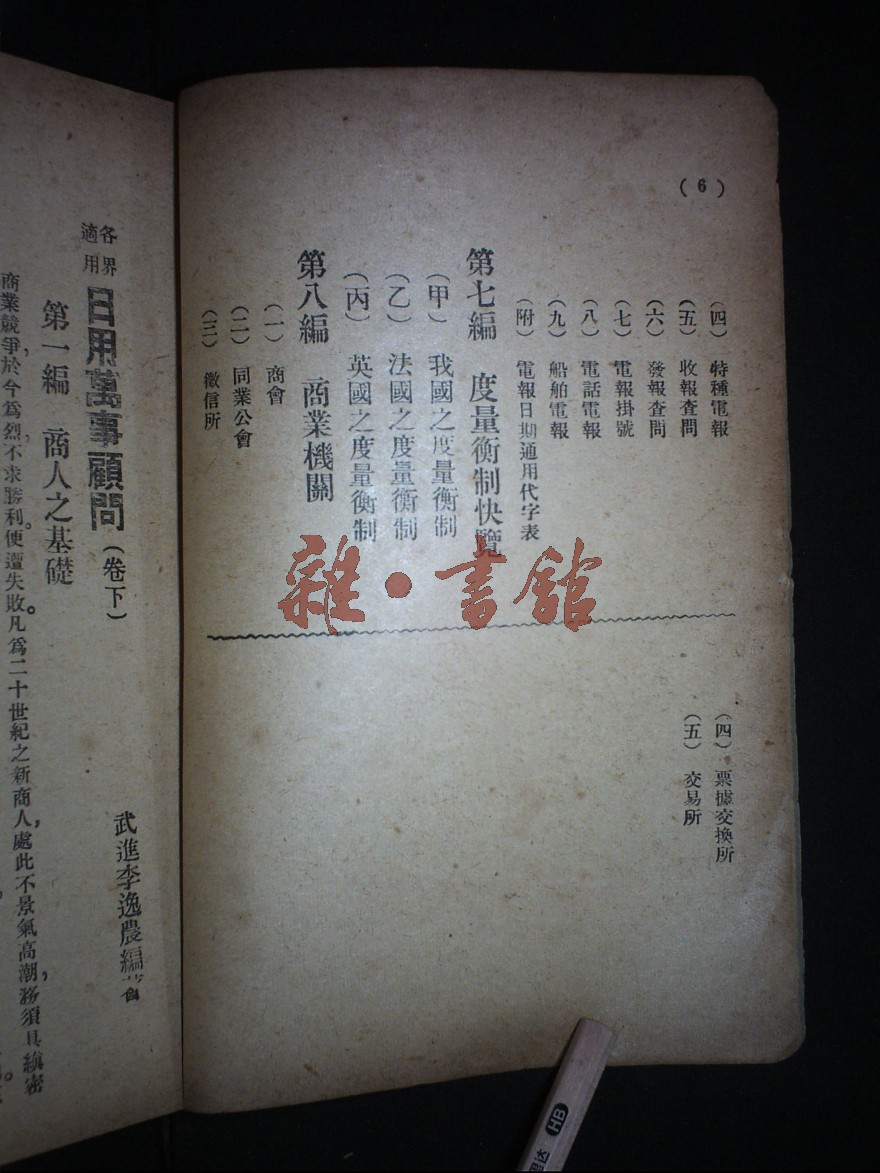 (6)
(四) 特種電報
(五) 收報查問
(六) 發報查問
(七) 電報掛號
(八) 電話電報
(九) 船舶電報
(附) 電報日期通用代字表
第七編 度量衡制快覽
(甲) 我國之度量衡制
(乙) 法國之度量衡制
(丙) 英國之度量衡制
第八編 商業機關
(一) 商會
(二) 同業公會
(三) 徵信所
(四) 票據交換所
(五) 交易所
雜·書館
各界適用
日用萬事顧問 (卷下)
武進李逸農編著
第一編 商人之基礎
商業競爭,於今爲烈,不求勝利,便遭失敗。凡爲二十世紀之新商人,處此不景氣高潮,務須具縝密
HB